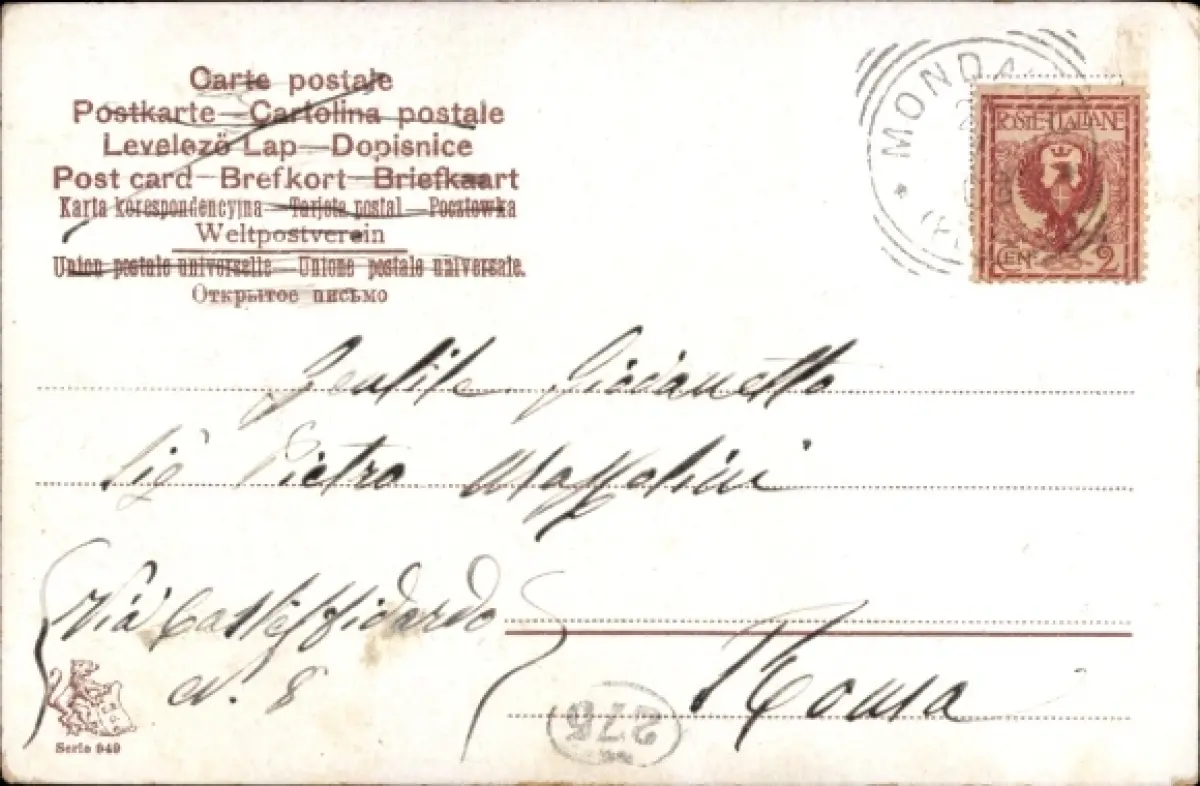 Carte postale
Postkarte — Cartolina postale
Levelezö Lap — Dopisnice
Post card — Brefkort — Briefkaart
Karta korespondencyjna — Tarjeta postal — Pocztowka
Weltpostverein
Union postale universelle — Unione postale universale.
Открытое письмо
MONDA
POSTE ITALIANE
CEN 2
Gentile Giovanetto
Sig Pietro
Via Castelfidardo
N. 8
Roma
276
Serie 949